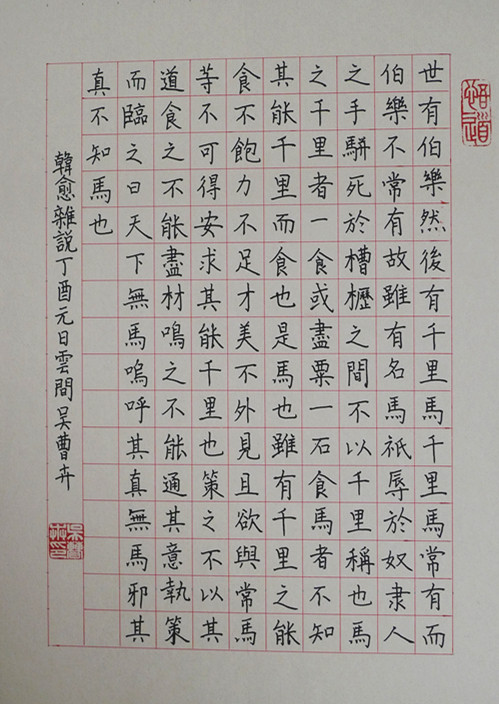 悟道
世有伯樂然後有千里馬千里馬常有而
伯樂不常有故雖有名馬祇辱於奴隶人
之手駢死於槽櫪之間不以千里稱也馬
之千里者一食或盡粟一石食馬者不知
其能千里而食也是馬也雖有千里之能
食不飽力不足才美不外見且欲與常馬
等不可得安求其能千里也策之不以其
道食之不能盡材鳴之不能通其意執策
而臨之曰天下無馬嗚呼其真無馬邪其
真不知馬也
韓愈雜說丁酉元日雲間吴曹卉